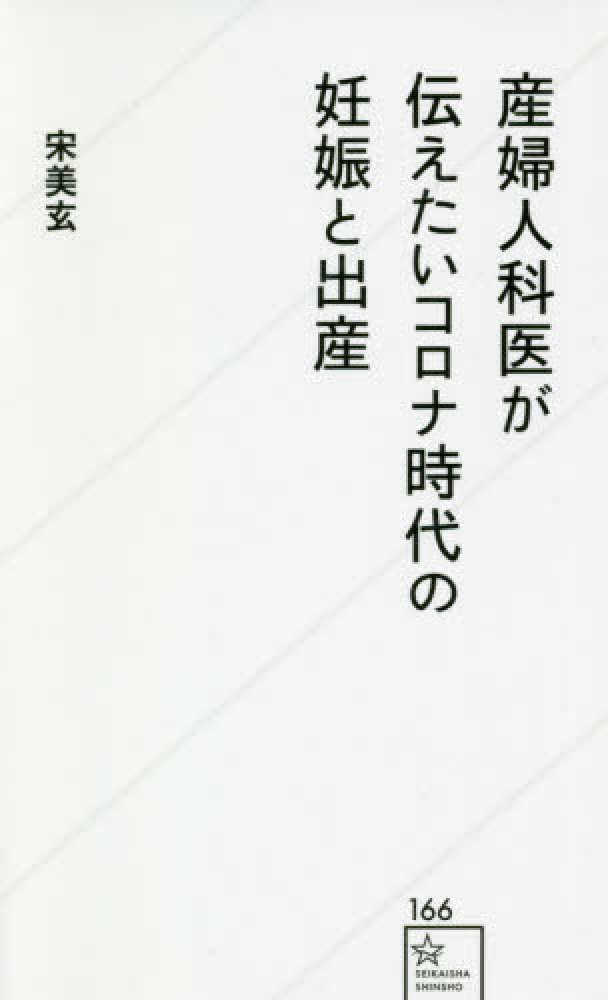 産婦人科医が
伝えたいコロナ時代の
妊娠と出産
宋美玄
166
SEIKAISHA
SHINSHO